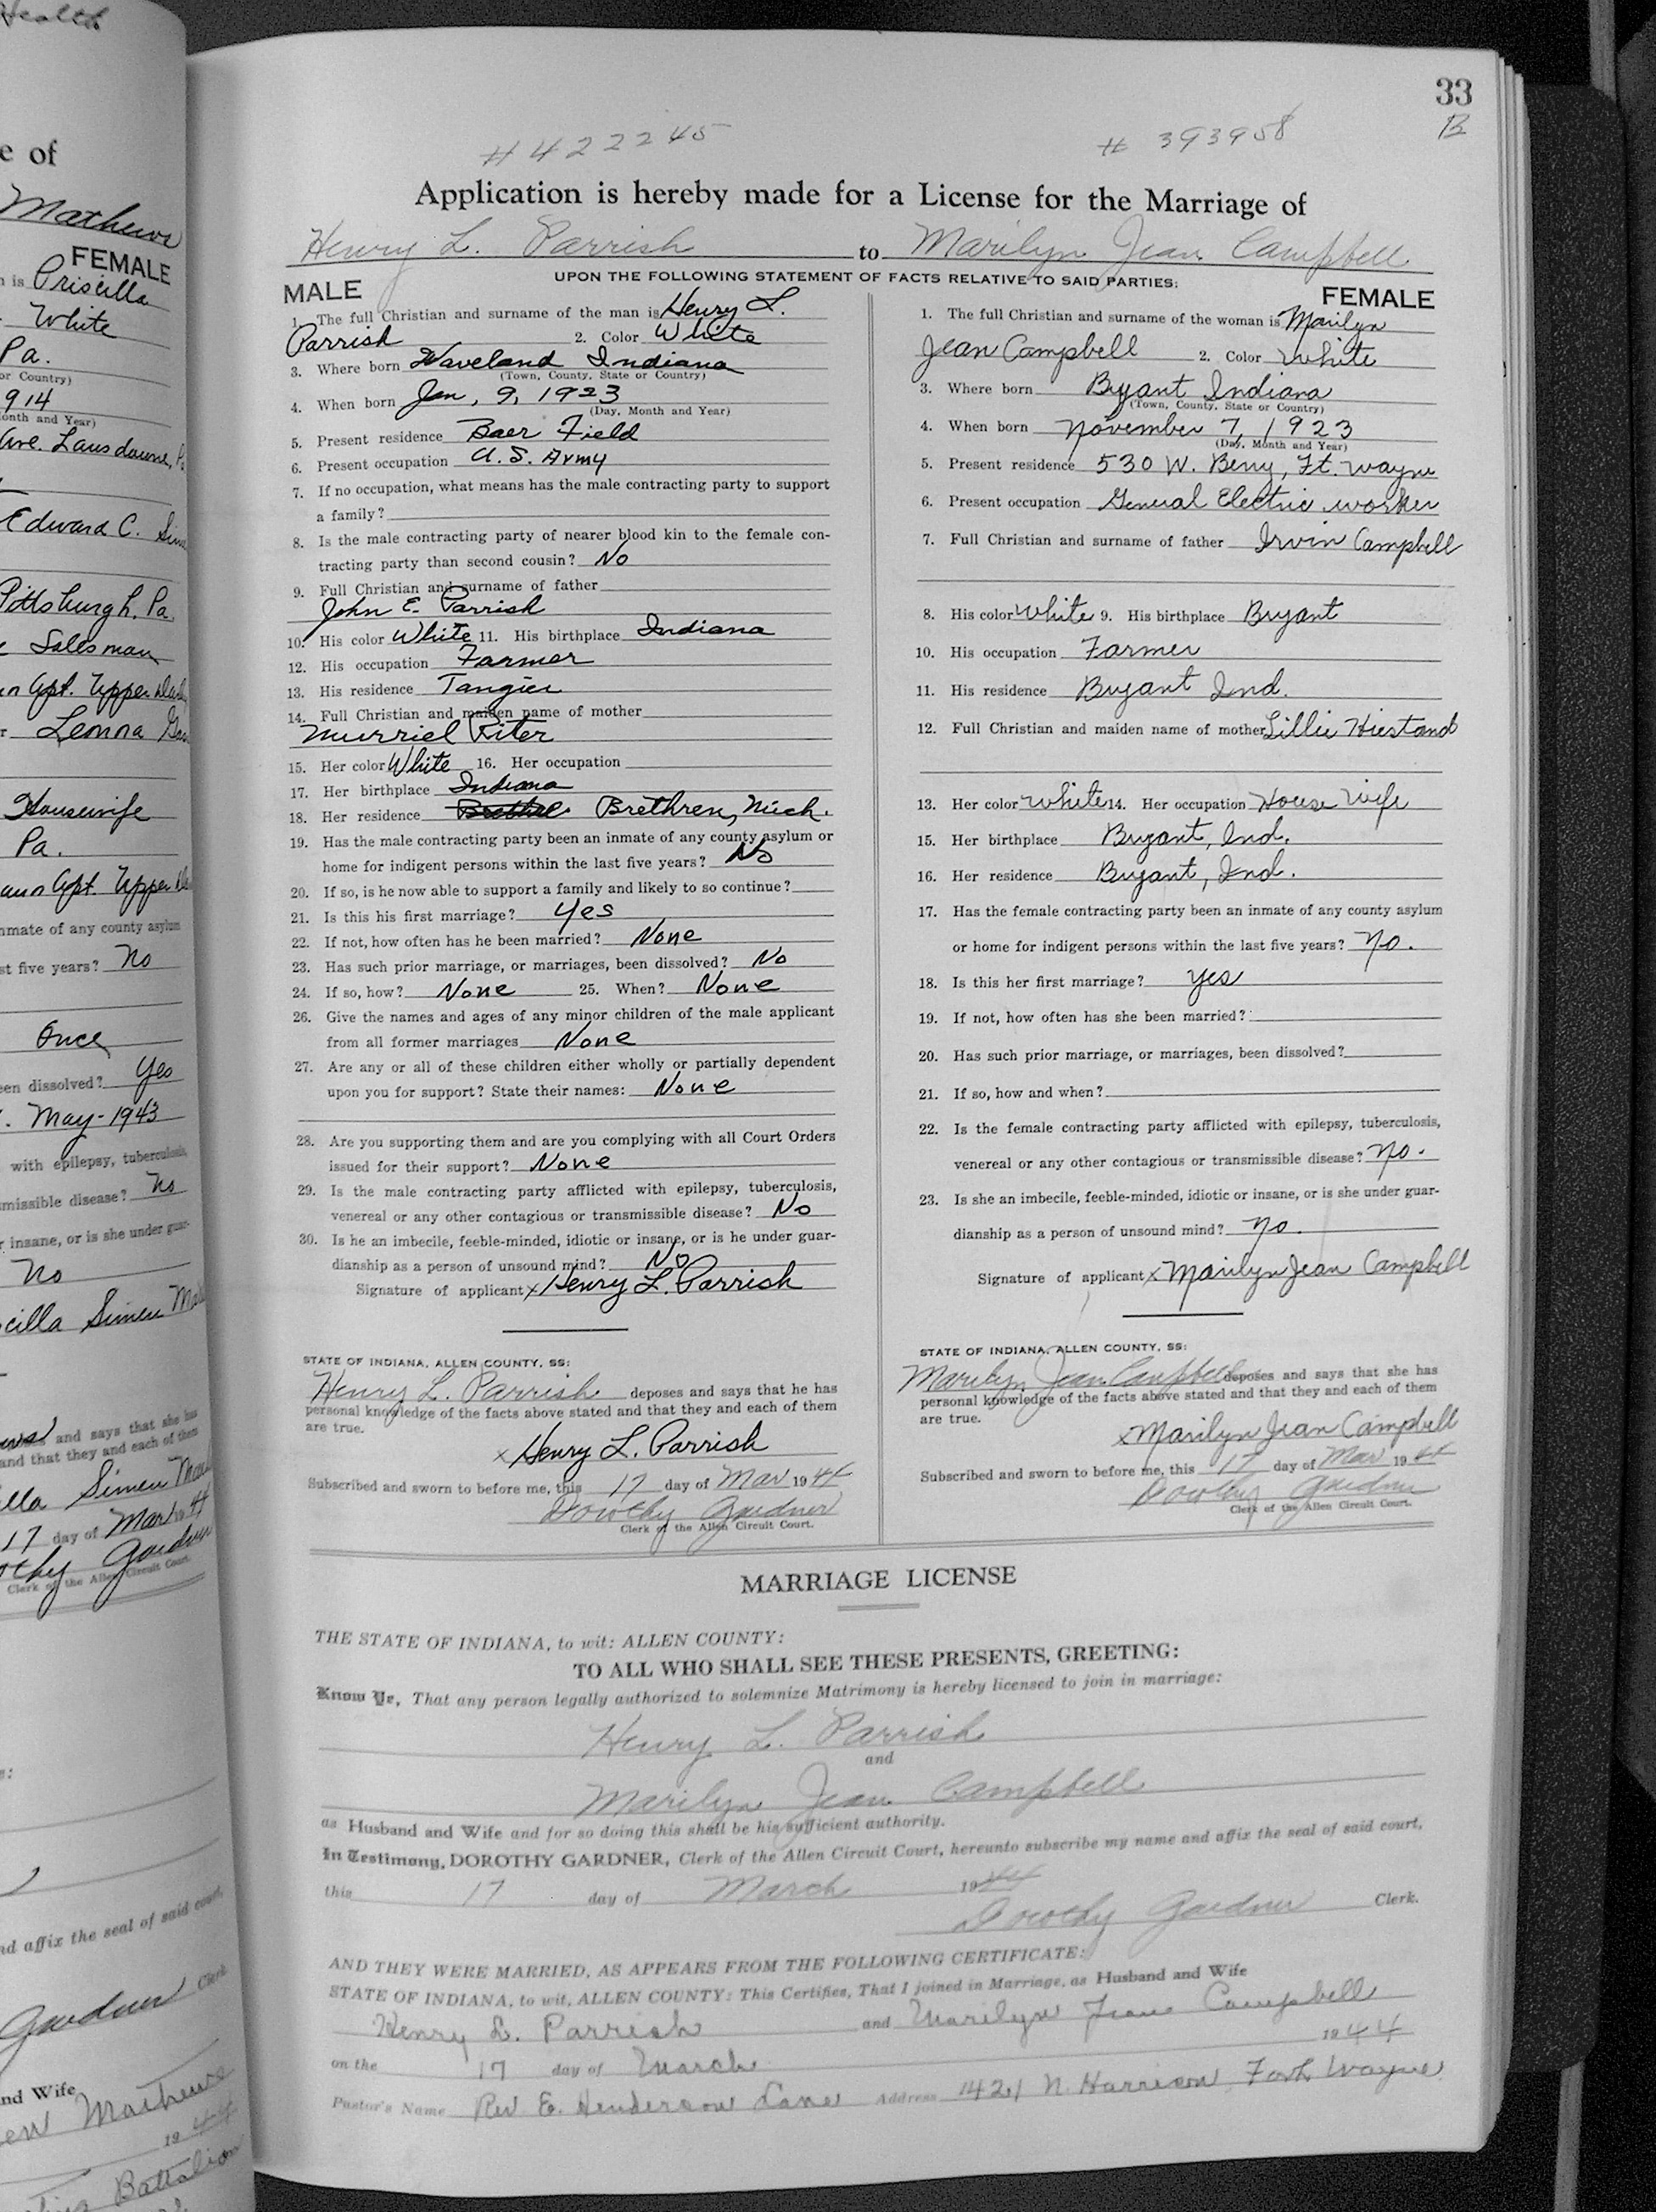 Health
e of
Mathews
FEMALE
n is Priscilla
White
Pa.
or Country)
914
onth and Year)
Ave. Lansdowne, P
Edward C. Sim
Pittsburgh, Pa.
Salesman
Apt. Upper
r Leonna
Housewife
Pa.
Apt. Upper
nmate of any county asylum
st five years? No
Once
een dissolved? Yes
. May-1943
with epilepsy, tuberculosis,
smissible disease? No
r insane, or is she under guar-
No
cilla Simen
and says that she has
and that they and each of them
lla Simen
17 day of Mar 1944
othy Gardner
Clerk of the Allen Circuit Court.
nd affix the seal of said court,
Gardner Clerk
nd Wife
Mathews
19 44
Battalion
33
B
#422245 # 393958
Application is hereby made for a License for the Marriage of
Henry L. Parrish to Marilyn Jean Campbell
UPON THE FOLLOWING STATEMENT OF FACTS RELATIVE TO SAID PARTIES:
MALE
1. The full Christian and surname of the man is Henry L.
Parrish 2. Color White
3. Where born Waveland Indiana
(Town, County, State or Country)
4. When born Jan, 9, 1923
(Day, Month and Year)
5. Present residence Baer Field
6. Present occupation U.S. Army
7. If no occupation, what means has the male contracting party to support
a family?
8. Is the male contracting party of nearer blood kin to the female con-
tracting party than second cousin? No
9. Full Christian and surname of father
John E. Parrish
10. His color White 11. His birthplace Indiana
12. His occupation Farmer
13. His residence Tangier
14. Full Christian and maiden name of mother
Murriel Riter
15. Her color White 16. Her occupation
17. Her birthplace Indiana
18. Her residence Brethren, Mich.
19. Has the male contracting party been an inmate of any county asylum or
home for indigent persons within the last five years? No
20. If so, is he now able to support a family and likely to so continue?
21. Is this his first marriage? Yes
22. If not, how often has he been married? None
23. Has such prior marriage, or marriages, been dissolved? No
24. If so, how? None 25. When? None
26. Give the names and ages of any minor children of the male applicant
from all former marriages None
27. Are any or all of these children either wholly or partially dependent
upon you for support? State their names: None
28. Are you supporting them and are you complying with all Court Orders
issued for their support? None
29. Is the male contracting party afflicted with epilepsy, tuberculosis,
venereal or any other contagious or transmissible disease? No
30. Is he an imbecile, feeble-minded, idiotic or insane, or is he under guar-
dianship as a person of unsound mind? No
Signature of applicant x Henry L. Parrish
STATE OF INDIANA, ALLEN COUNTY, SS:
Henry L. Parrish deposes and says that he has
personal knowledge of the facts above stated and that they and each of them
are true.
x Henry L. Parrish
Subscribed and sworn to before me, this 17 day of Mar 1944
Dorothy Gardner
Clerk of the Allen Circuit Court.
FEMALE
1. The full Christian and surname of the woman is Marilyn
Jean Campbell 2. Color White
3. Where born Bryant Indiana
(Town, County, State or Country)
4. When born November 7, 1923
(Day, Month and Year)
5. Present residence 530 W. Berry, Ft. Wayne
6. Present occupation General Electric worker
7. Full Christian and surname of father Irvin Campbell
8. His color White 9. His birthplace Bryant
10. His occupation Farmer
11. His residence Bryant Ind.
12. Full Christian and maiden name of mother Lillie Hiestand
13. Her color White 14. Her occupation House Wife
15. Her birthplace Bryant, Ind.
16. Her residence Bryant, Ind.
17. Has the female contracting party been an inmate of any county asylum
or home for indigent persons within the last five years? No.
18. Is this her first marriage? Yes
19. If not, how often has she been married?
20. Has such prior marriage, or marriages, been dissolved?
21. If so, how and when?
22. Is the female contracting party afflicted with epilepsy, tuberculosis,
venereal or any other contagious or transmissible disease? No.
23. Is she an imbecile, feeble-minded, idiotic or insane, or is she under guar-
dianship as a person of unsound mind? No.
Signature of applicant x Marilyn Jean Campbell
STATE OF INDIANA, ALLEN COUNTY, SS:
Marilyn Jean Campbell deposes and says that she has
personal knowledge of the facts above stated and that they and each of them
are true.
x Marilyn Jean Campbell
Subscribed and sworn to before me, this 17 day of Mar 1944
Dorothy Gardner
Clerk of the Allen Circuit Court.
MARRIAGE LICENSE
THE STATE OF INDIANA, to wit: ALLEN COUNTY:
TO ALL WHO SHALL SEE THESE PRESENTS, GREETING:
Know Ye, That any person legally authorized to solemnize Matrimony is hereby licensed to join in marriage:
Henry L. Parrish
and
Marilyn Jean Campbell
as Husband and Wife and for so doing this shall be his sufficient authority.
In Testimony, DOROTHY GARDNER, Clerk of the Allen Circuit Court, hereunto subscribe my name and affix the seal of said court,
this 17 day of March 1944
Dorothy Gardner Clerk.
AND THEY WERE MARRIED, AS APPEARS FROM THE FOLLOWING CERTIFICATE:
STATE OF INDIANA, to wit, ALLEN COUNTY: This Certifies, That I joined in Marriage, as Husband and Wife
Henry L. Parrish and Marilyn Jean Campbell
on the 17 day of March 1944
Pastor's Name Rev E. Henderson Lane Address 1421 N. Harrison, Fort Wayne